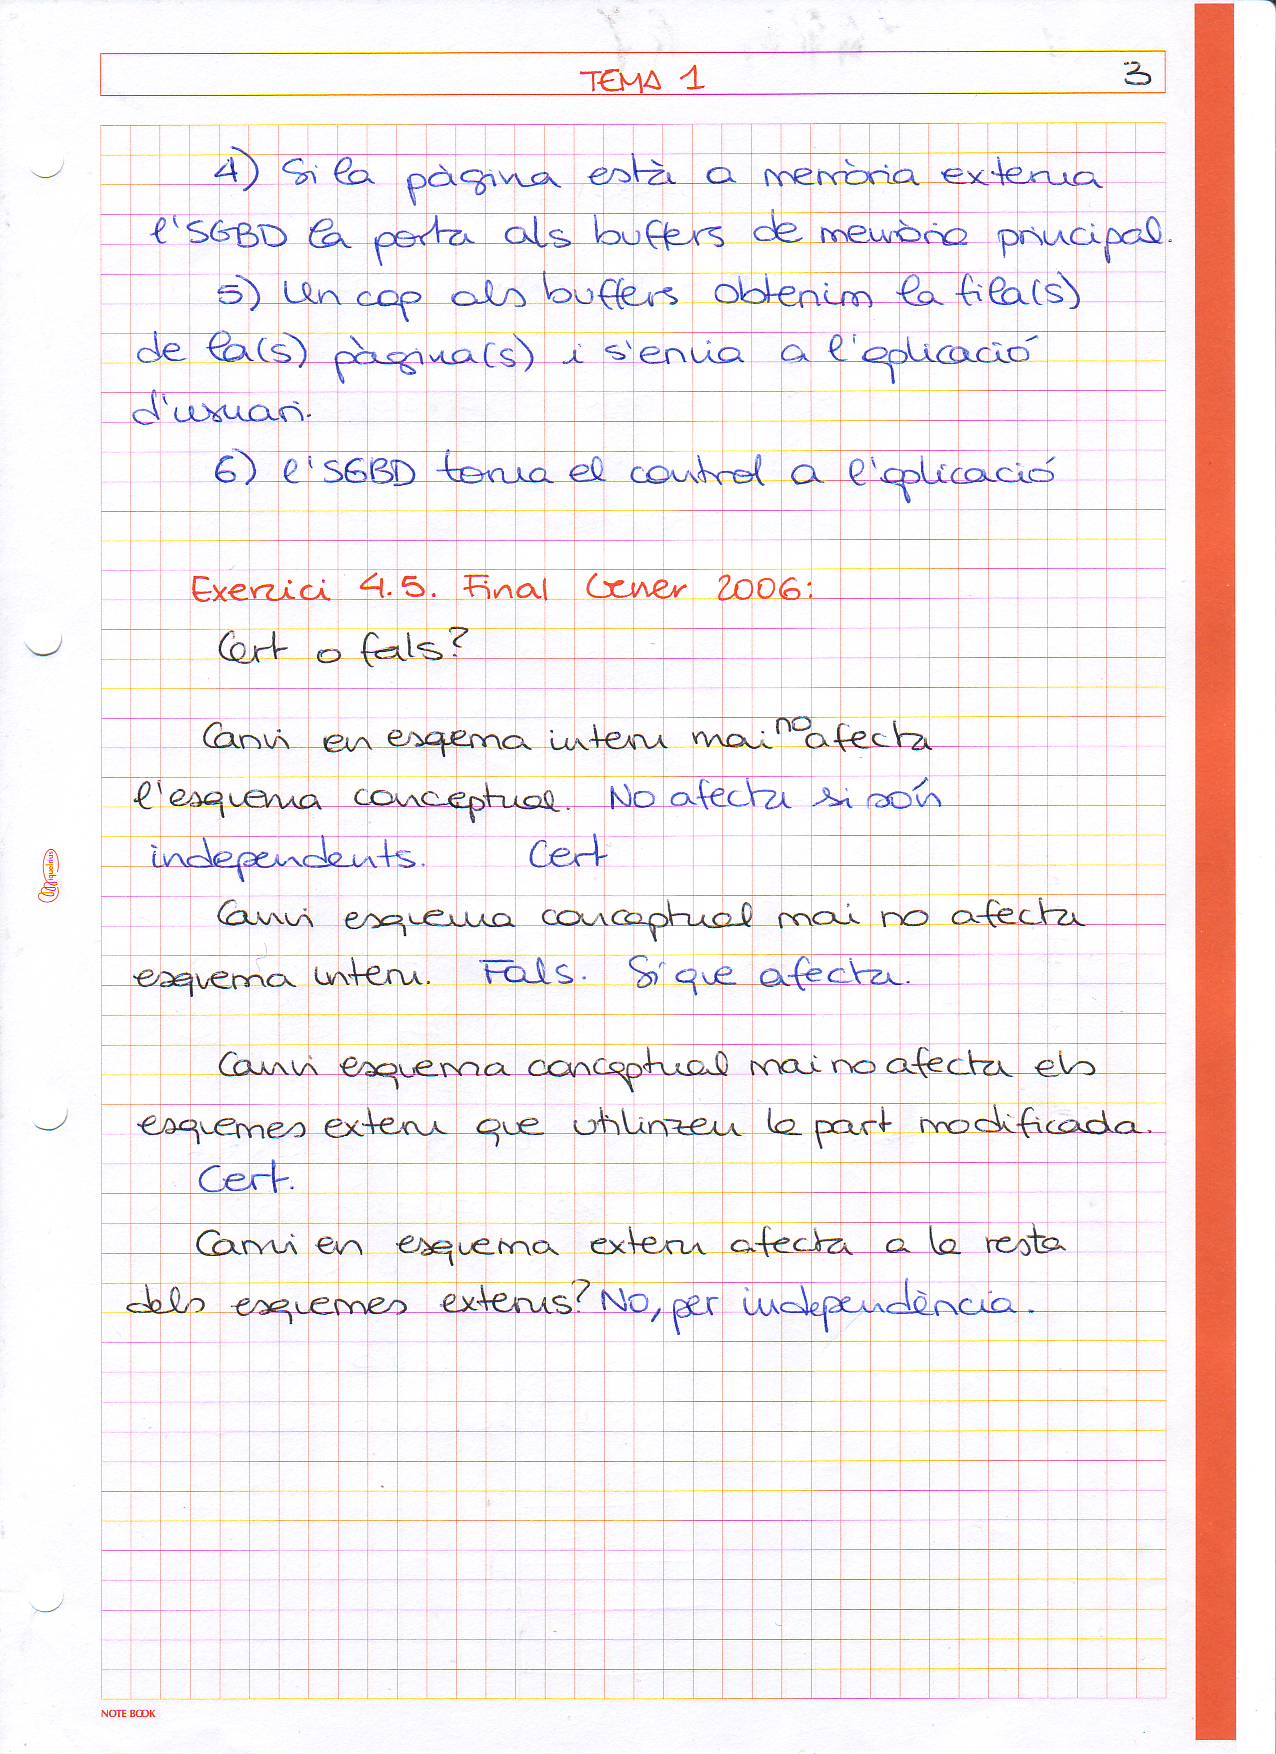 TEMA 1
3
4) Si la pàgina està a memòria externa
l'SGBD la porta als buffers de memòria principal.
5) Un cop als buffers obtenim la fila(s)
de la(s) pàgina(s) i s'envia a l'aplicació
d'usuari.
6) l'SGBD torna el control a l'aplicació
Exercici 4.5. Final Gener 2006:
Cert o fals?
Canvi en esqema intern mai no afecta
l'esquema conceptual. No afecta si són
independents. Cert
Canvi esquema conceptual mai no afecta
esquema intern. Fals. Sí que afecta.
Canvi esquema conceptual mai no afecta els
esquemes extern que utilinzen la part modificada.
Cert.
Canvi en esquema extern afecta a la resta
dels esquemes externs? No, per independència.
Miquelrius
NOTE BOOK